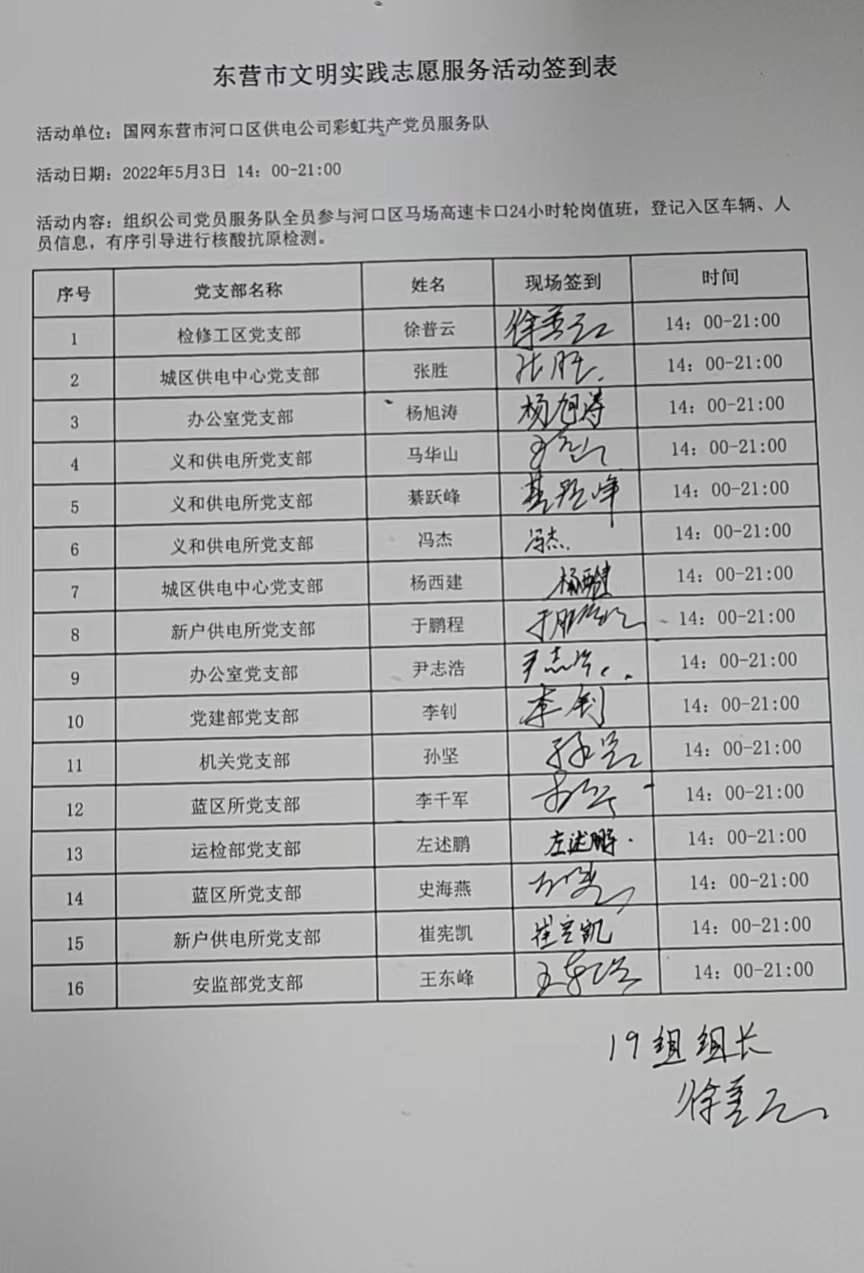 东营市文明实践志愿服务活动签到表
活动单位：国网东营市河口区供电公司彩虹共产党员服务队
活动日期：2022年5月3日 14：00-21:00
活动内容：组织公司党员服务队全员参与河口区马场高速卡口24小时轮岗值班，登记入区车辆、人
员信息，有序引导进行核酸抗原检测。
序号 党支部名称 姓名 现场签到 时间
1 检修工区党支部 徐普云 徐普云 14：00-21:00
2 城区供电中心党支部 张胜 张胜 14：00-21:00
3 办公室党支部 杨旭涛 杨旭涛 14：00-21:00
4 义和供电所党支部 马华山 14：00-21:00
5 义和供电所党支部 綦跃峰 綦跃峰 14：00-21:00
6 义和供电所党支部 冯杰 冯杰 14：00-21:00
7 城区供电中心党支部 杨西建 杨西建 14：00-21:00
8 新户供电所党支部 于鹏程 于鹏程 14：00-21:00
9 办公室党支部 尹志浩 尹志浩 14：00-21:00
10 党建部党支部 李钊 李钊 14：00-21:00
11 机关党支部 孙坚 孙坚 14：00-21:00
12 蓝区所党支部 李千军 14：00-21:00
13 运检部党支部 左述鹏 左述鹏 14：00-21:00
14 蓝区所党支部 史海燕 14：00-21:00
15 新户供电所党支部 崔宪凯 崔宪凯 14：00-21:00
16 安监部党支部 王东峰 王东峰 14：00-21:00
19组组长
徐普云